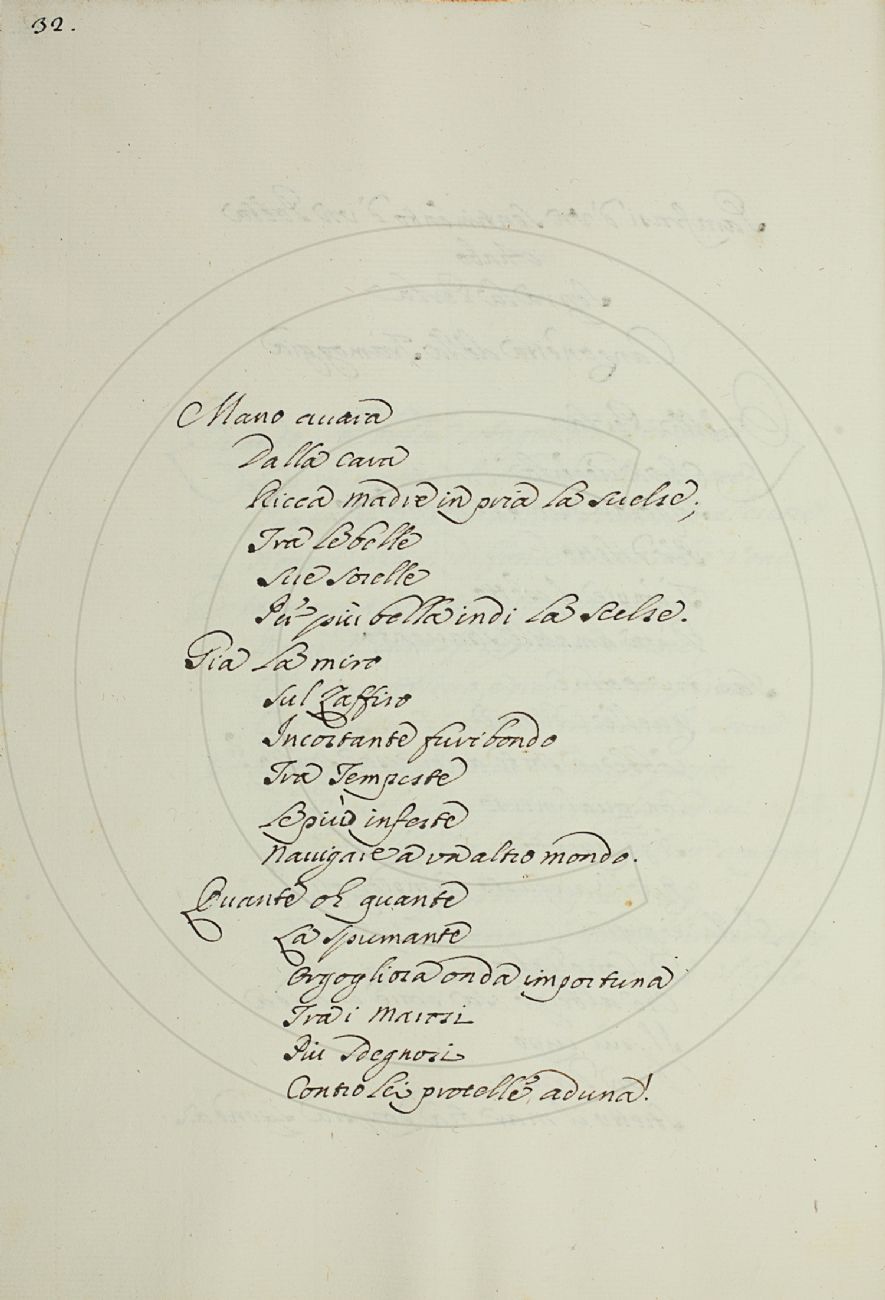 32.
Mano auara
Dalla cara
Ricca madre in pria la suelse;
Tra le belle
sue sorelle
Piu' più bella indi la scelse.
Gia la miro
sul Zaffiro
Incostante furibondo
Tra Tempeste
le più infeste
Nauigare a un altro mondo.
Quante oh quante
La spumante
Orgogliosa onda importuna
Tra i Marosi
Piu sdegnosi
Contro lei procelle aduna!